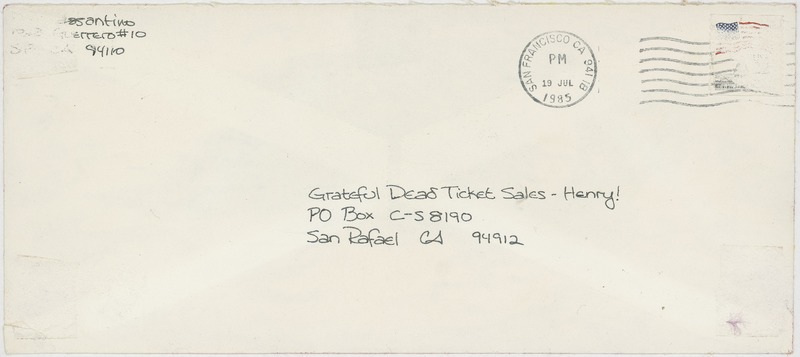 santino
Guerrero #10
94110
SAN FRANCISCO CA 941 1B
PM
19 JUL
1985
Grateful Dead Ticket Sales - Henry!
PO Box C-S8190
San Rafael CA 94912